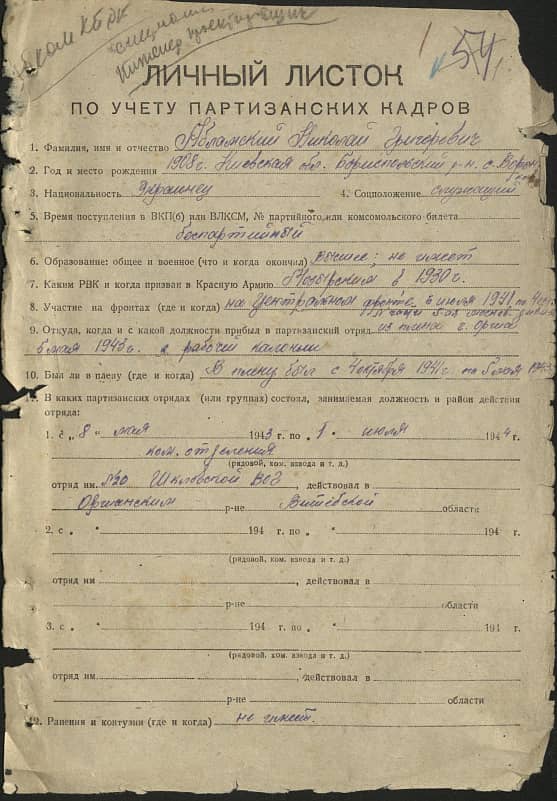 54
ЛИЧНЫЙ ЛИСТОК
ПО УЧЕТУ ПАРТИЗАНСКИХ КАДРОВ
1. Фамилия, имя и отчество Абламский Николай Григорьевич
2. Год и место рождения 1908 г. Киевская обл. Бориспольский р-н с.
3. Национальность Украинец 4. Соцположение служащий
5. Время поступления в ВКП(б) или ВЛКСМ, № партийного или комсомольского билета
беспартийный
6. Образование: общее и военное (что и когда окончил) высшее; не имеет
7. Каким РВК и когда призван в Красную Армию Мозырским в 1930 г.
8. Участие на фронтах (где и когда) на Центральном фронте с июля 1941 по
9. Откуда, когда и с какой должности прибыл в партизанский отряд из плена г. Орша
6 мая 1943 г. с рабочей колонны
10. Был ли в плену (где и когда) В плену был с 4 октября 1941 г. по 5 мая 1943
11. В каких партизанских отрядах (или группах) состоял, занимаемая должность и район действия
отряда:
1. с „ 8 " мая 1943 г. по „ 1 " июля 1944 г.
ком. отделения
(рядовой, ком. взвода и т. д.)
отряд им. №20 Шкловской ВОГ, действовал в
Оршанским р-не Витебской области
2. с „ " 194 г. по „ " 194 г.
(рядовой, ком. взвода и т. д.)
отряд им , действовал в
р-не области
3. с „ " 194 г. по „ " 194 г.
(рядовой, ком. взвода и т. д.)
отряд им. , действовал в
р-не области
12. Ранения и контузии (где и когда) не имеет.